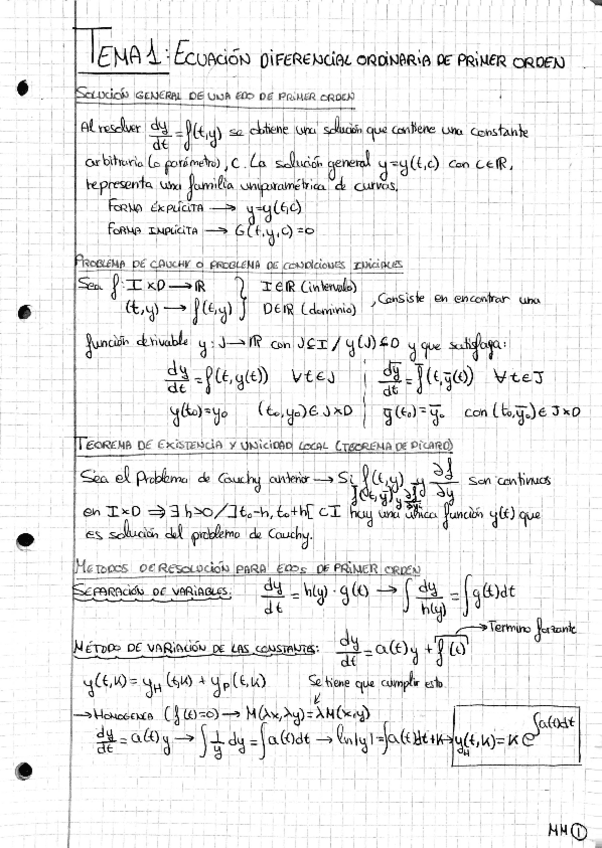 TEMA 1: ECUACIÓN DIFERENCIAL ORDINARIA DE PRIMER ORDEN
SOLUCIÓN GENERAL DE UNA EDO DE PRIMER ORDEN
Al resolver dy/dt = f(t,y) se obtiene una solución que contiene una constante
arbitraria (o parámetro), C. La solución general y=y(t,c) con C∈IR,
representa una familia uniparamétrica de curvas.
FORMA EXPLÍCITA → y=y(t,c)
FORMA IMPLÍCITA → G(t,y,c)=0
PROBLEMA DE CAUCHY O PROBLEMA DE CONDICIONES INICIALES
Sea f: I×D → IR } I∈IR (intervalo)
(t,y) → f(t,y) } D∈IR (dominio) , Consiste en encontrar una
función derivable y: J→IR con J⊆I / y(J)⊆D y que satisfaga:
dy/dt = f(t,y(t)) ∀t∈J | dȳ/dt = f̄(t,ȳ(t)) ∀t∈J
y(t₀)=y₀ (t₀,y₀)∈J×D | ȳ(t₀)=ȳ₀ con (t₀,ȳ₀)∈J×D
TEOREMA DE EXISTENCIA Y UNICIDAD LOCAL (TEOREMA DE PICARD)
Sea el Problema de Cauchy anterior → Si f(t,y) y ∂f/∂y son continuas
f̄(t,ȳ) y ∂f̄/∂ȳ
en I×D ⇒ ∃ h>0 / ]t₀-h, t₀+h[ ⊂ I hay una única función y(t) que
es solución del problema de Cauchy.
MÉTODOS DE RESOLUCIÓN PARA EDOs DE PRIMER ORDEN
SEPARACIÓN DE VARIABLES: dy/dt = h(y)·g(t) → ∫ dy/h(y) = ∫ g(t)dt
→ Termino forzante
MÉTODO DE VARIACIÓN DE LAS CONSTANTES: dy/dt = a(t)y + f(t)
y(t,K) = y_H(t,K) + y_P(t,K) Se tiene que cumplir esto
→ HOMOGENEA (f(t)=0) → M(λx,λy)=λM(x,y)
dy/dt = a(t)y → ∫ 1/y dy = ∫ a(t)dt → ln|y| = ∫ a(t)dt+K → y_H(t,K) = K e^∫a(t)dt
MM ①